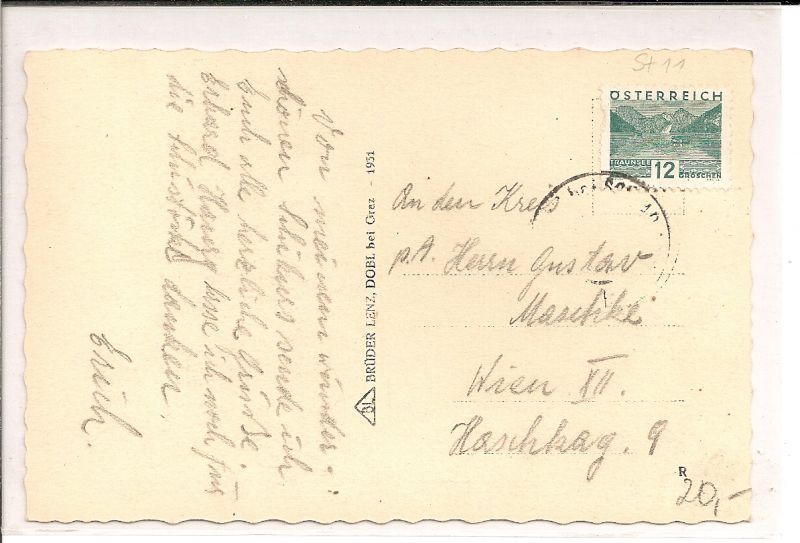 Von meinem wunder-
schönen Schikurs sende ich
Euch alle herzliche Grüße.
Erhard Hanerg lasse ich noch für
die Schistöcke danken.
Erich.
BRÜDER LENZ, DOBL bei Graz - 1931
St 11
ÖSTERREICH
TRAUNSEE
12
GROSCHEN
An den Kreis
p.A. Herrn Gustav
Maschke
Wien XII.
Haschkag. 9
R
20,-